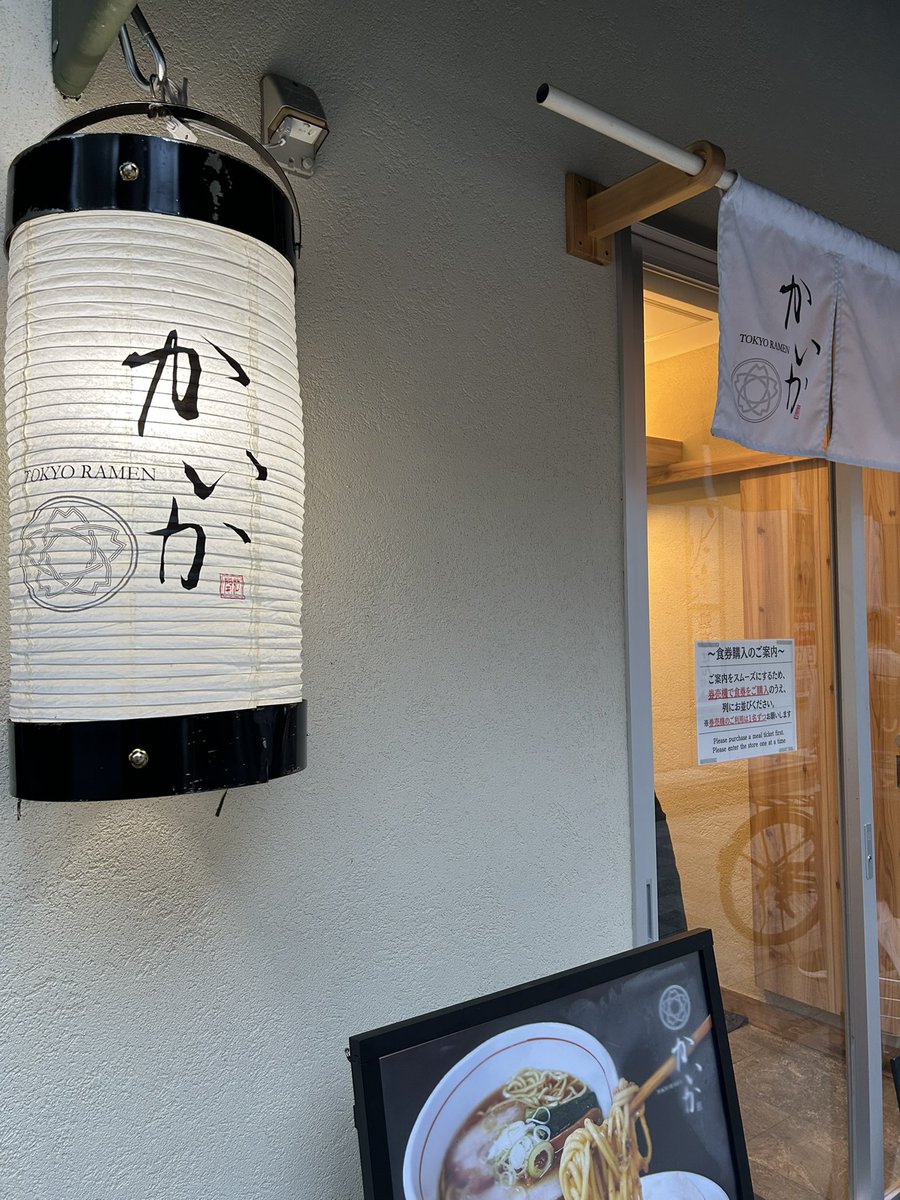 かいか
TOKYO RAMEN
かいか
TOKYO RAMEN
～食券購入のご案内～
ご案内をスムーズにするため、
券売機で食券をご購入のうえ、
列にお並びください。
※券売機のご利用は1名ずつお願いします
Please purchase a meal ticket first.
Please enter the store one at a time
かいか